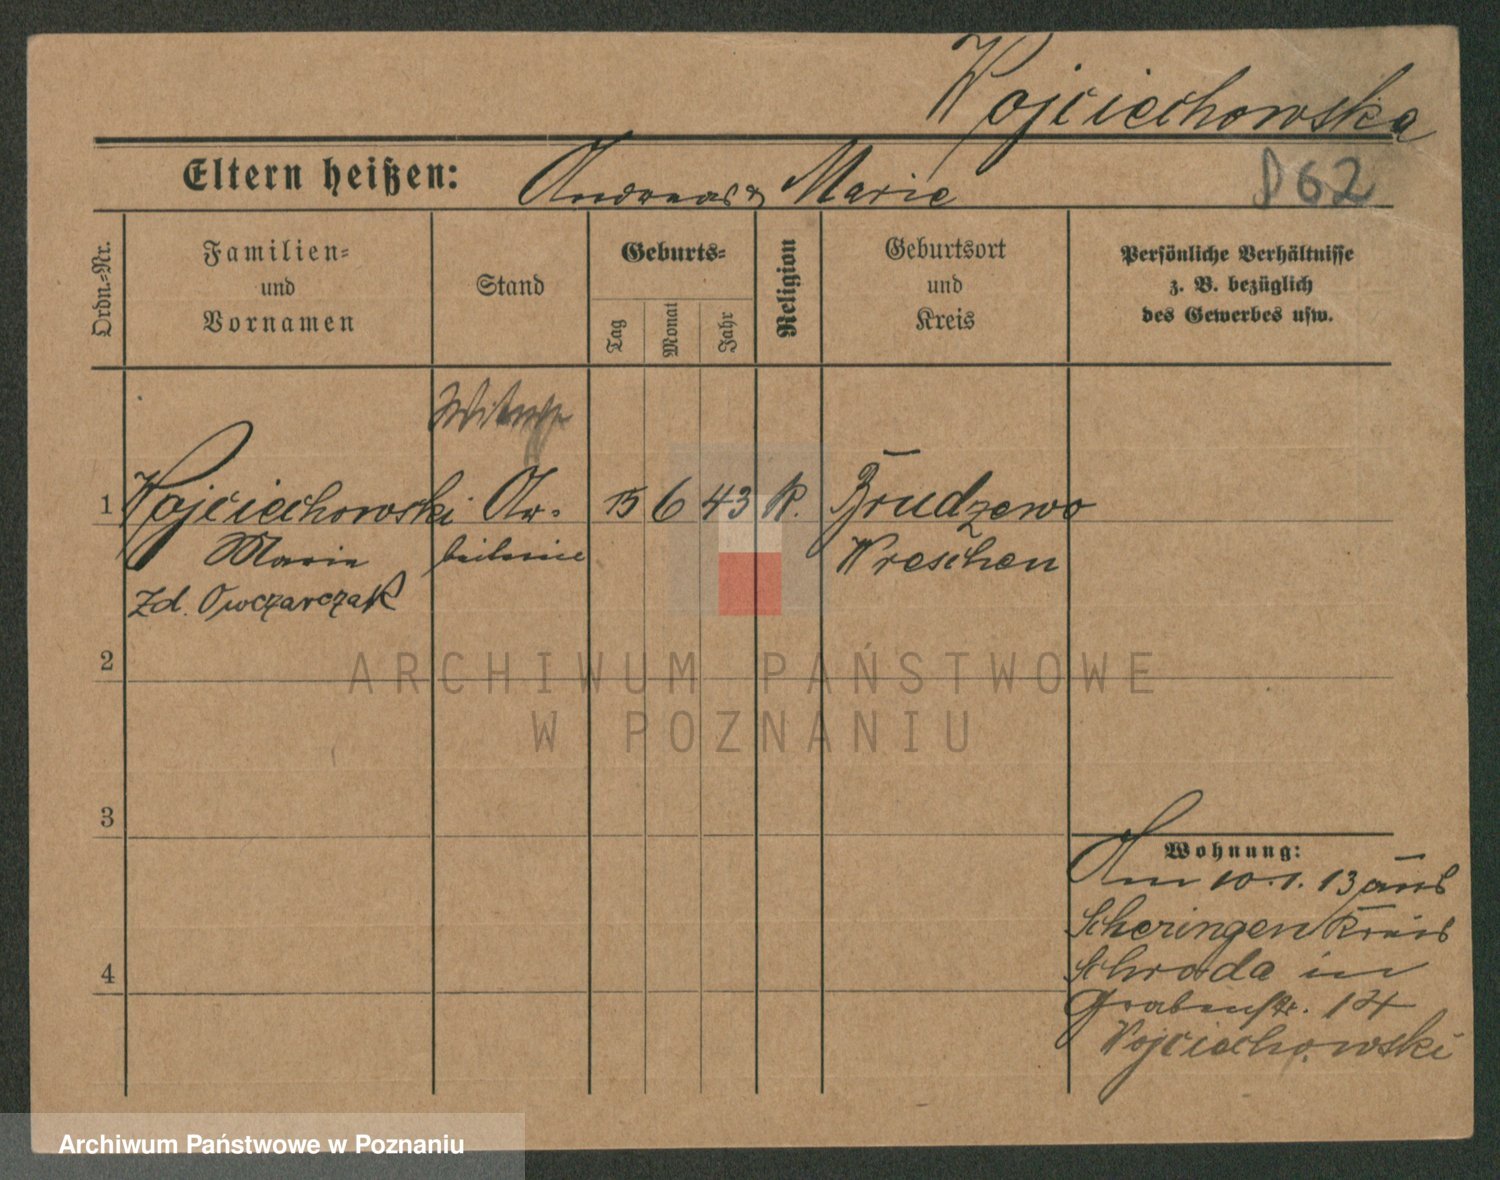 Wojciechowska
Eltern heißen: Andreas & Marie
D 62
Ordn.-Nr.
Familien-
und
Vornamen
Stand
Geburts-
Tag
Monat
Jahr
Religion
Geburtsort
und
Kreis
Persönliche Verhältnisse
z. B. bezüglich
des Gewerbes usw.
1 Wojciechowski Ar- 15 6 43 K. Brudzewo
Marie beiterin Wreschen
zd. Owczarczak
2
3
4
Wohnung:
Am 10.1.13 aus
Scheringen Kreis
Schroda in
Grabenstr. 14
Wojciechowski
ARCHIWUM PAŃSTWOWE
W POZNANIU
Archiwum Państwowe w Poznaniu